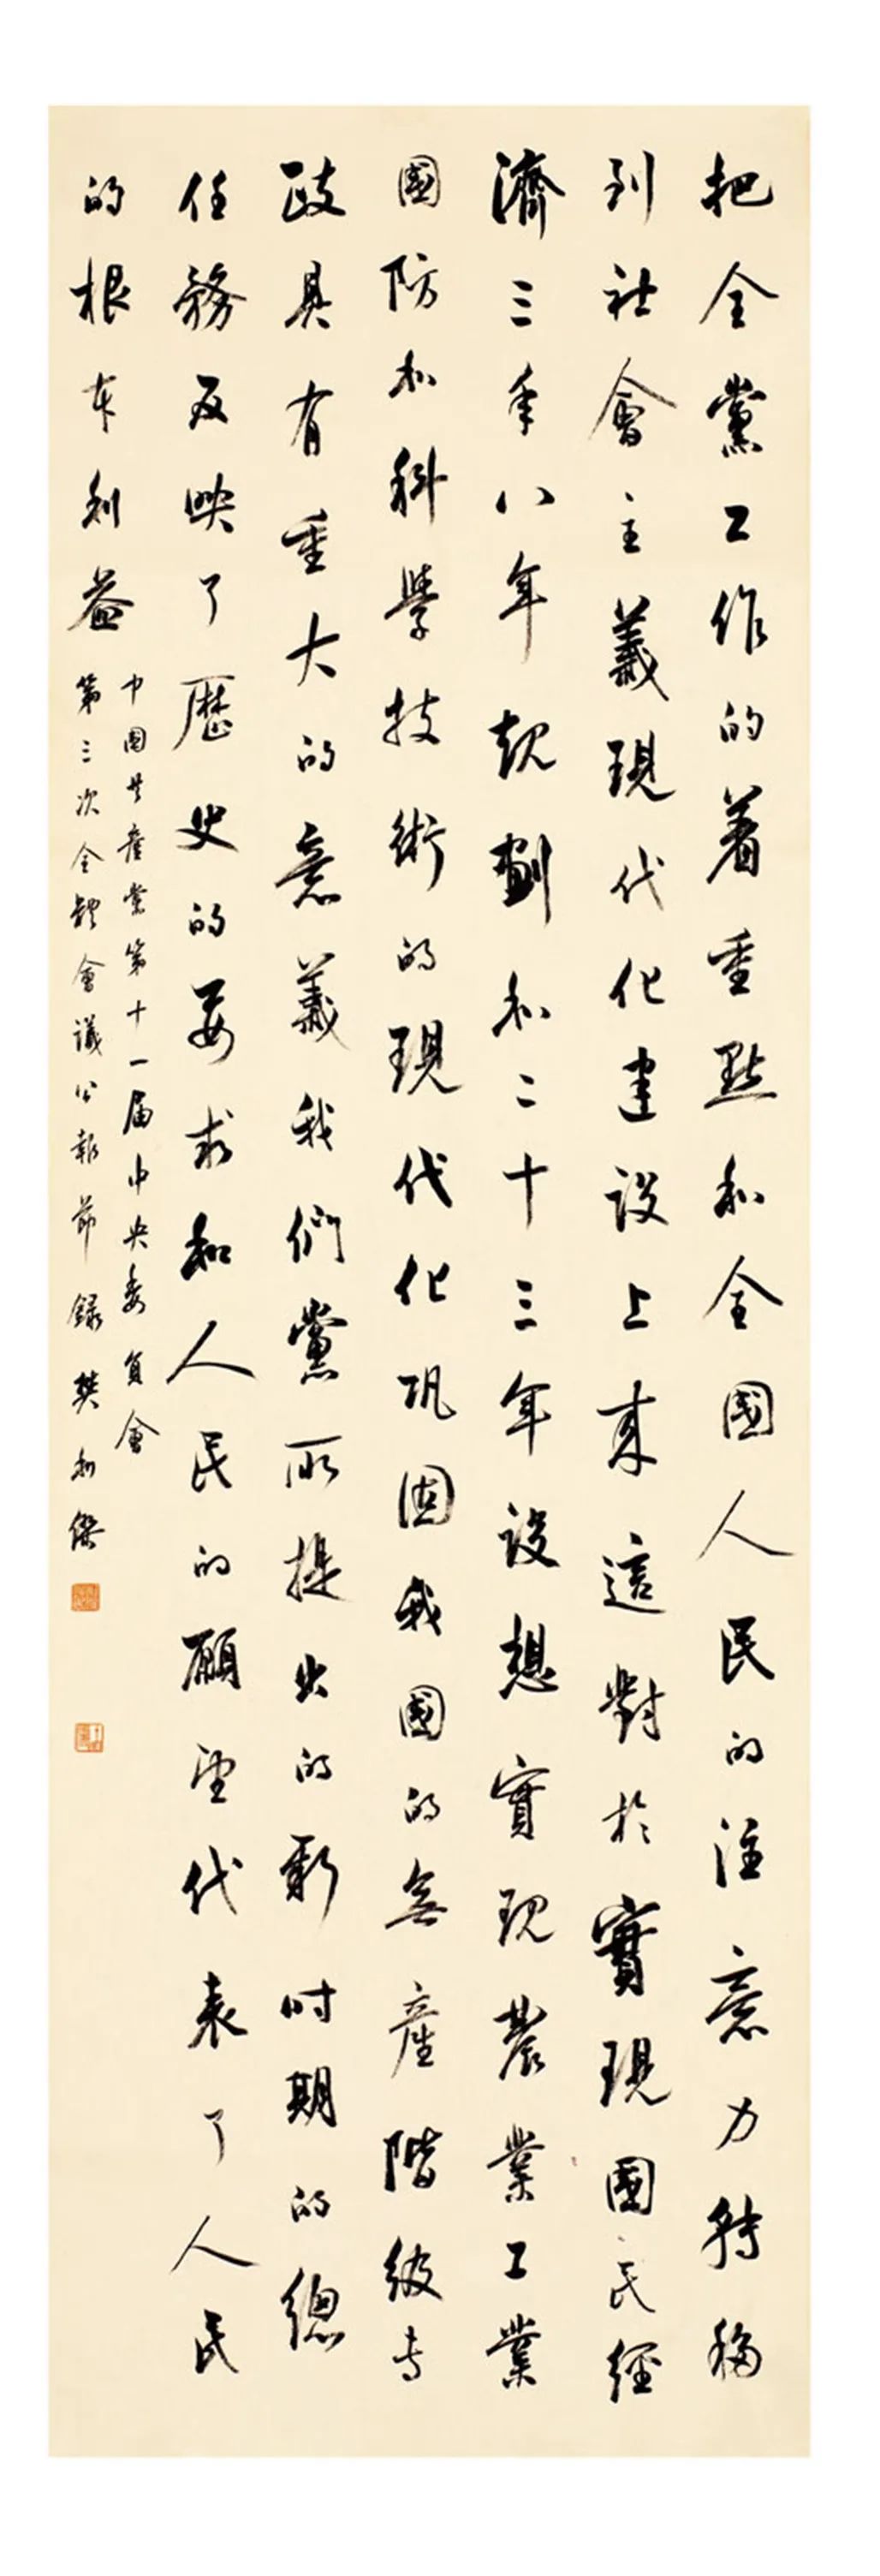 把全黨工作的着重點和全國人民的注意力轉移
到社會主義現代化建設上來這對於實現國民經
濟三年八年規劃和二十三年設想實現農業工業
國防和科學技術的現代化鞏固我國的無產階級專
政具有重大的意義我們黨所提出的新時期的總
任務反映了歷史的要求和人民的願望代表了人民
的根本利益
中國共產黨第十一屆中央委員會
第三次全體會議公報節錄樊利傑